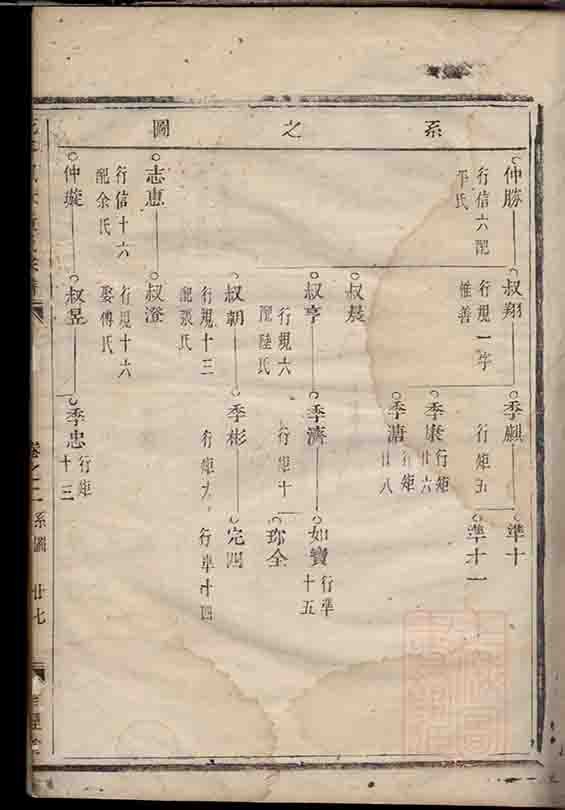 系之圖
仲勝
行信六配
平氏
叔翔
行規一字
惟善
季顒
行矩五
準十
準十一
季康
行矩
廿六
季溏
行矩
廿八
叔晟
叔亨
行規六
配陸氏
季濟
行矩十
如寶
行準
十五
珎全
叔朝
行規十三
配張氏
季彬
行矩九
完四
行準十四
志惠
行信十六
配余氏
叔澄
行規十六
娶傅氏
仲璇
叔昱
季忠
行矩
十三
卷之二
系圖
廿七